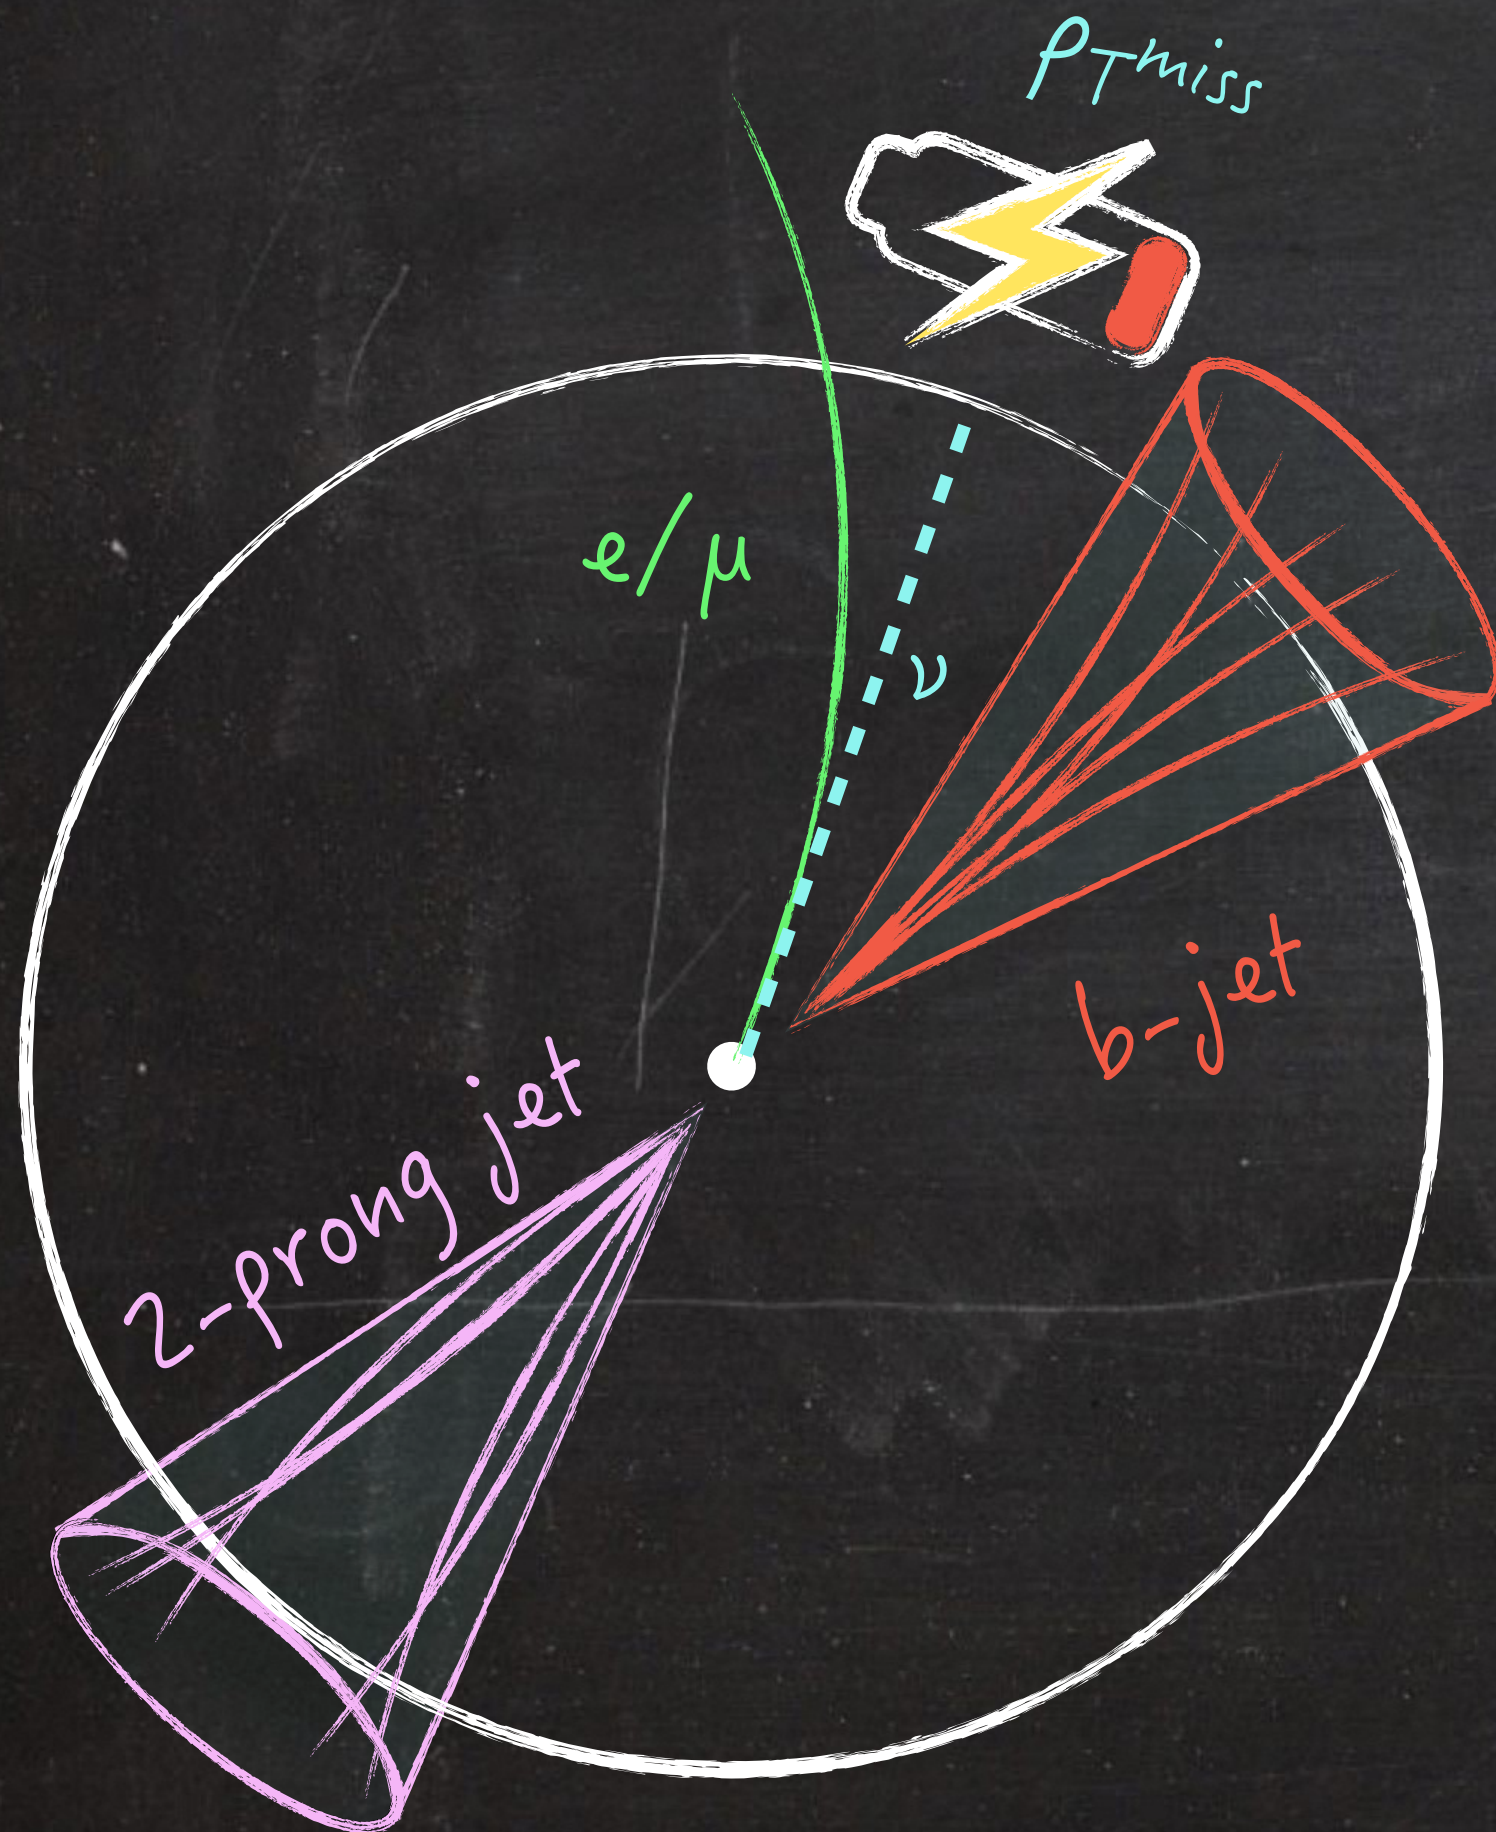 pTmiss
e/μ
ν
b-jet
2-prong jet